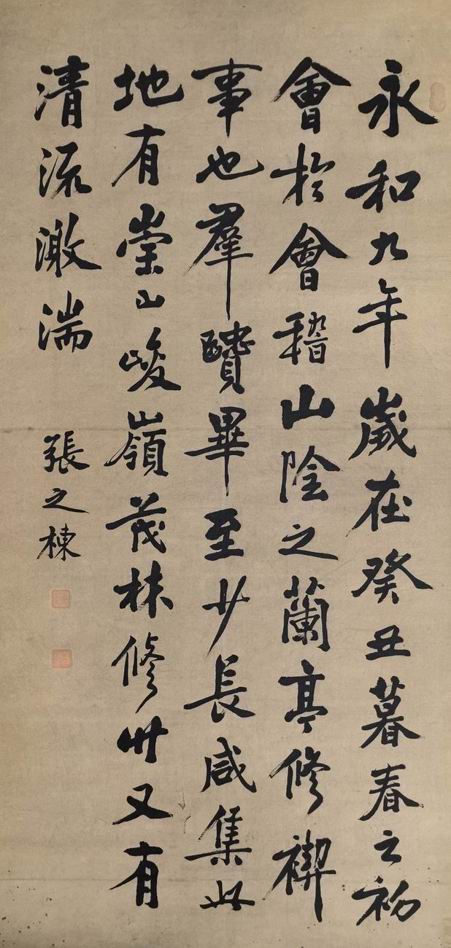 永和九年歲在癸丑暮春之初
會於會稽山陰之蘭亭修禊
事也羣賢畢至少長咸集此
地有崇山峻嶺茂林修竹又有
清流激湍
張之棟